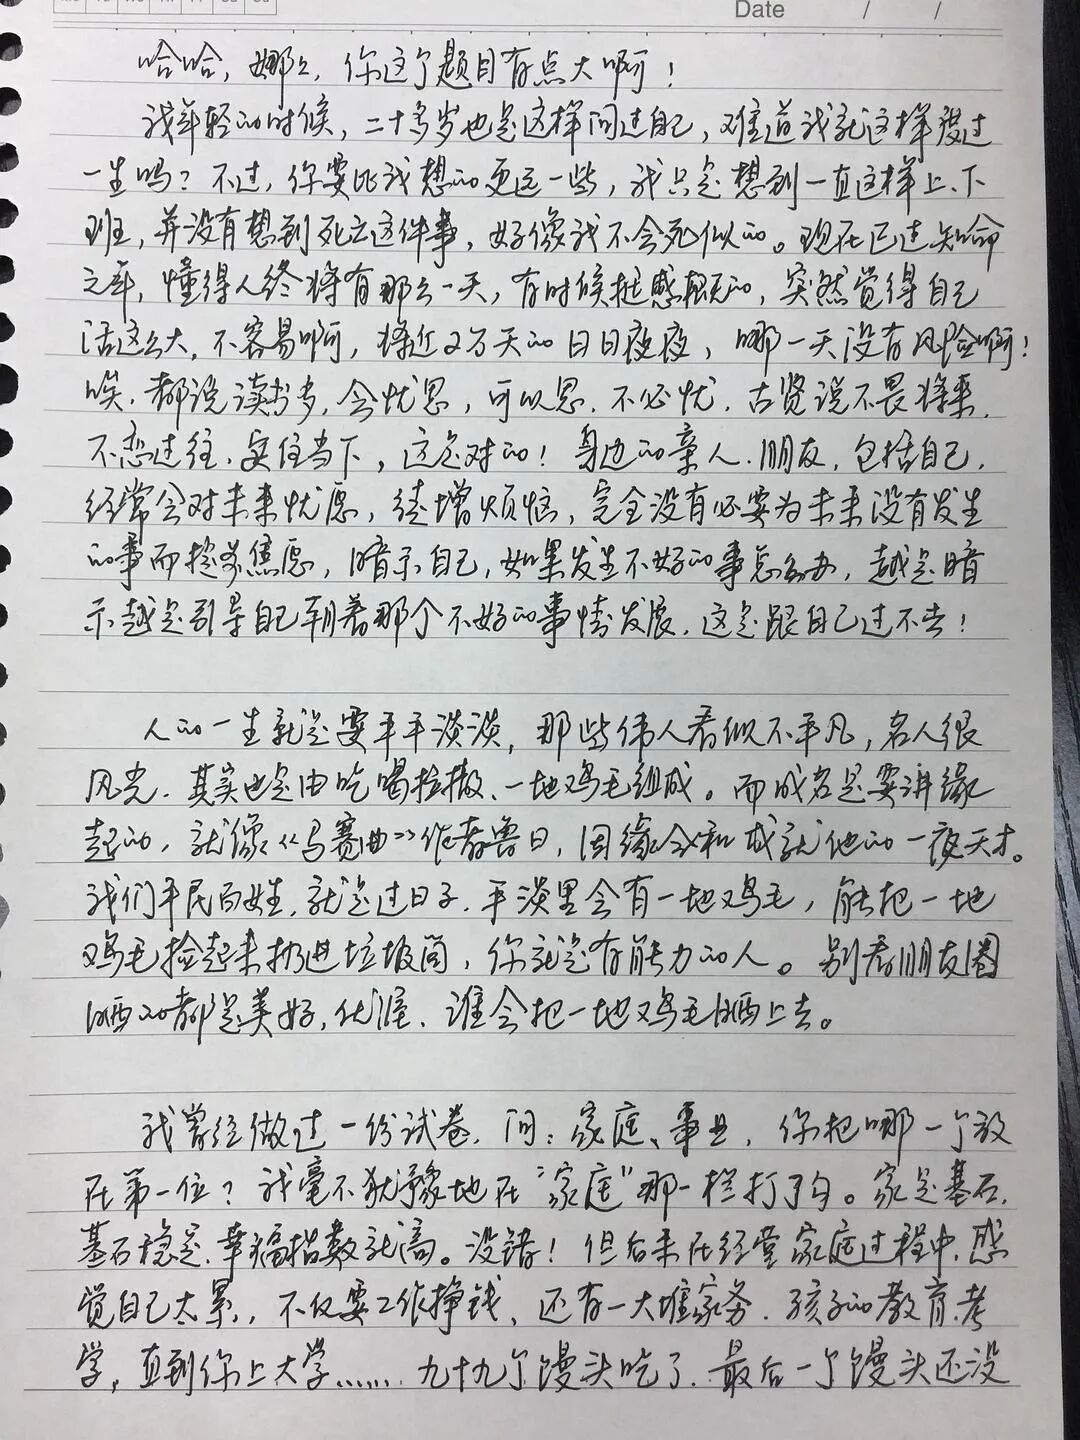 Date / /
哈哈，娜么，你这个题目有点大啊！
我年轻的时候，二十多岁也是这样问过自己，难道我就这样度过
一生吗？不过，你要比我想的更远一些，我只是想到一直这样上、下
班，并没有想到死亡这件事，好像我不会死似的。现在已过知命
之年，懂得人终将有那么一天，有时候挺感慨的，突然觉得自己
活这么大，不容易啊，将近2万天的日日夜夜，哪一天没有风险啊！
唉，都说读书多，会忧思，可以思，不必忧，古贤说不畏将来，
不恋过往，安住当下，这是对的！身边的亲人、朋友，包括自己，
经常会对未来忧虑，徒增烦恼，完全没有必要为未来没有发生
的事而焦虑，暗示自己，如果发生不好的事怎么办，越是暗
示越是引导自己朝着那个不好的事情发展，这是跟自己过不去！
人的一生就是要平平淡淡，那些伟人看似不平凡，名人很
风光，其实也是由吃喝拉撒、一地鸡毛组成。而成名是要讲缘
起的，就像《马赛曲》作者鲁日，因缘合和成就他的一夜天才。
我们平民百姓，就是过日子，平淡里会有一地鸡毛，能把一地
鸡毛捡起来扔进垃圾筒，你就是有能力的人。别看朋友圈
晒的都是美好，优渥，谁会把一地鸡毛晒上去。
我曾经做过一份试卷，问：家庭、事业，你把哪一个放
在第一位？我毫不犹豫地在“家庭”那一栏打了勾。家是基石，
基石稳定，幸福指数就高。没错！但后来在经营家庭过程中，感
觉自己太累，不仅要工作挣钱，还有一大堆家务，孩子的教育、考
学，直到你上大学……九十九个馒头吃了，最后一个馒头还没